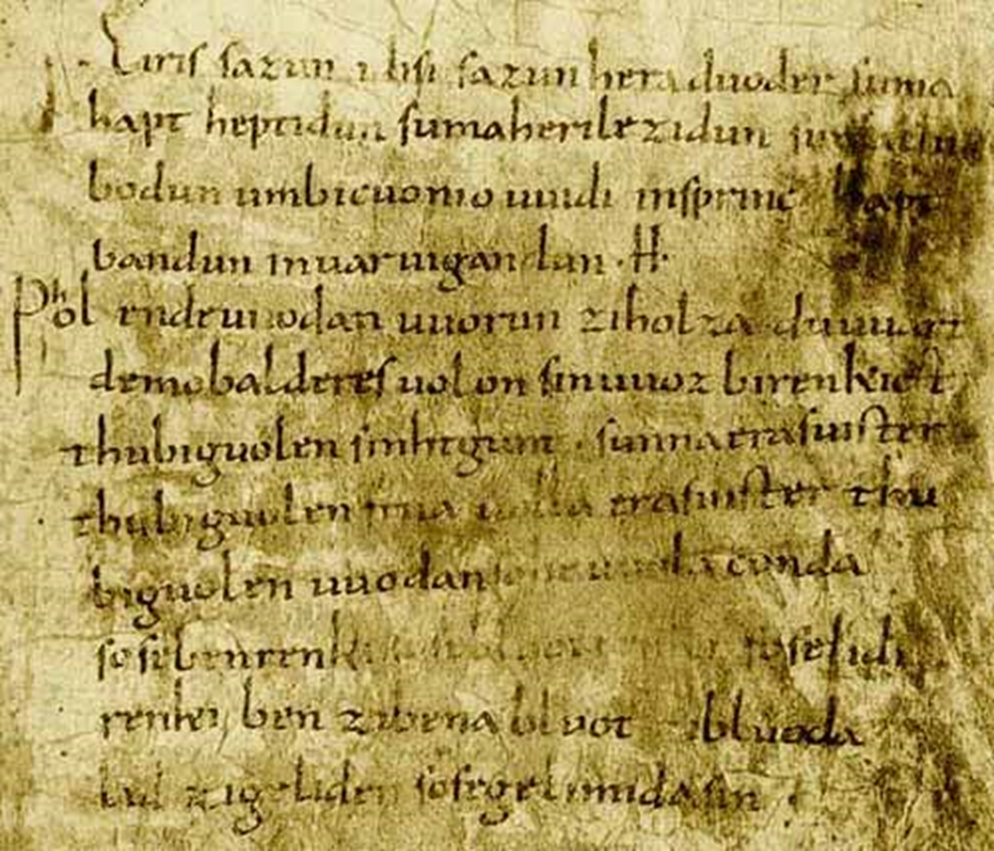 Eiris sazun idisi sazun hera duoder suma
hapt heptidun sumaherilezidun sumaclu
bodun umbicuonio uuidi insprinc hapt
bandun inuar uigandun ·H·
Phol endeuuodan uuorun ziholza du uuart
demobalderes uolon sinuuoz birenkict
thubiguolen sinhtgunt · sunna erasuister
thubiguolen friia uolla erasuister thu
biguolen uuodan uuola conda
sosebenrenki soselidi
renki ben zibena bluot zibluoda
lid zigeliden sosegelimida sin